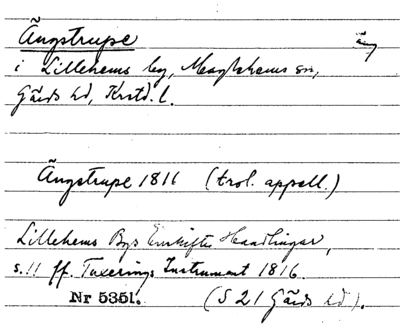 Ängstrupe
äng
i Lillehems by, Maglehems sn,
Gärds hd, Krstd. l.
Ängstrupe 1816 (trol. appell.)
Lillehems Bys Enskiftes Handlingar,
s. 11 ff. Taxerings Instrument 1816.
Nr 5351. (S 21 Gärds hd).